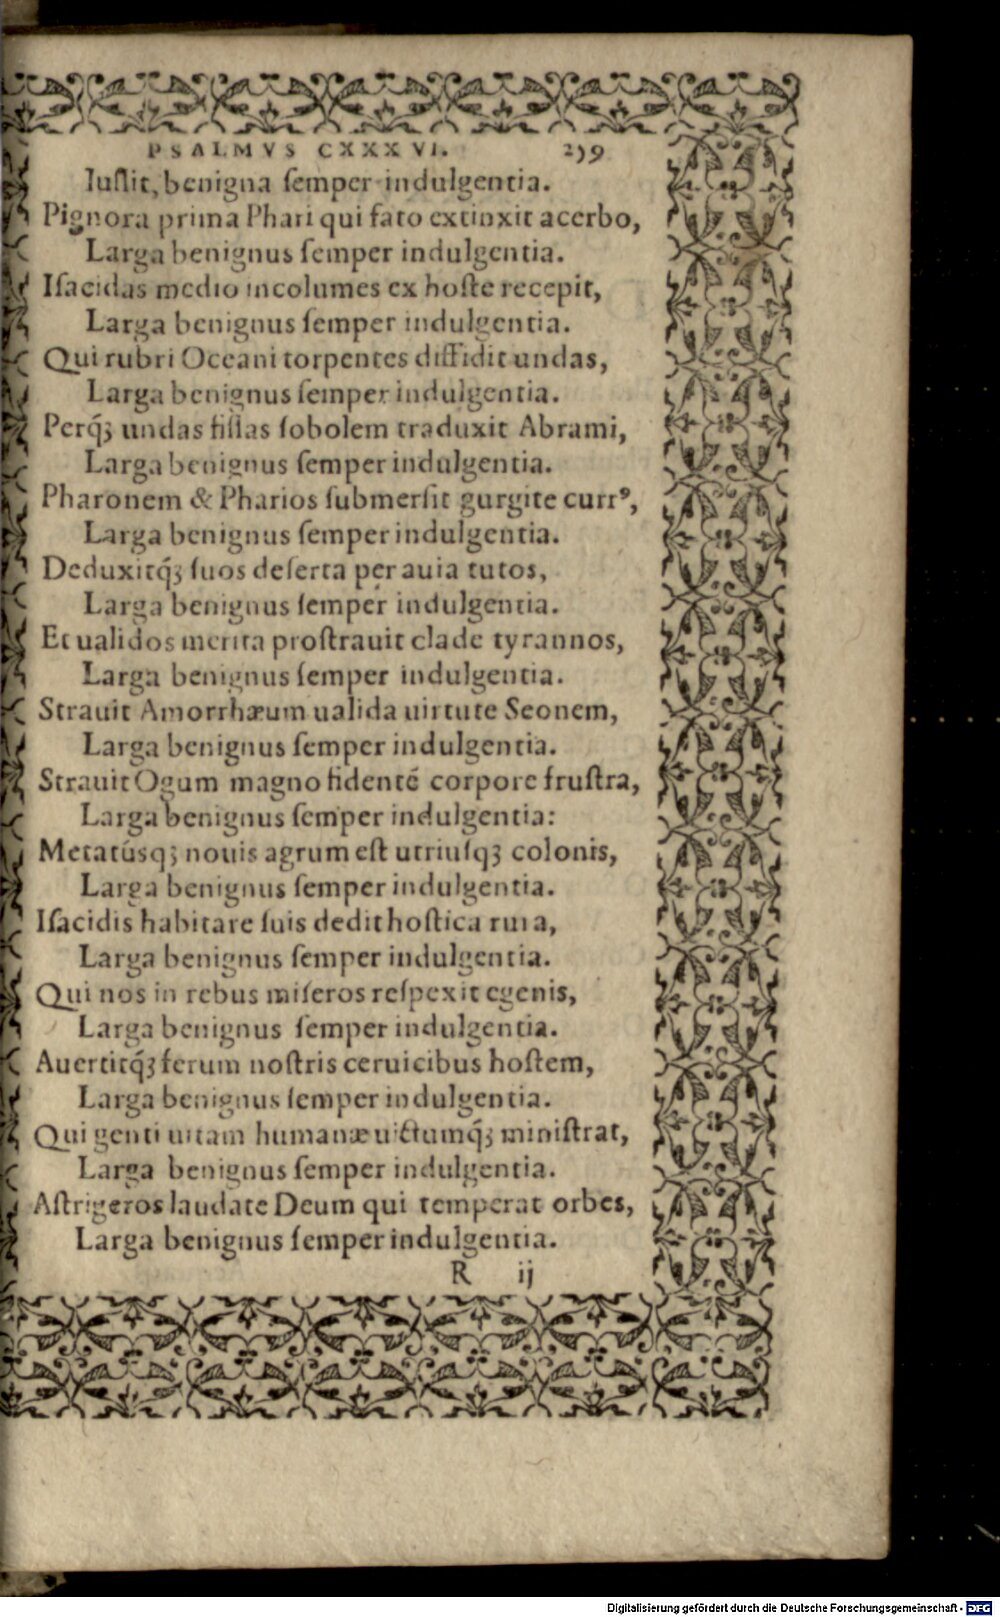 PSALMVS CXXXVI. 259
Iuſsit, benigna ſemper indulgentia.
Pignora prima Phari qui fato extinxit acerbo,
Larga benignus ſemper indulgentia.
Iſacidas medio incolumes ex hoſte recepit,
Larga benignus ſemper indulgentia.
Qui rubri Oceani torpentes diffidit undas,
Larga benignus ſemper indulgentia.
Perq́ꝫ undas fiſſas ſobolem traduxit Abrami,
Larga benignus ſemper indulgentia.
Pharonem & Pharios ſubmerſit gurgite currꝰ,
Larga benignus ſemper indulgentia.
Deduxitq́ꝫ ſuos deſerta per auia tutos,
Larga benignus ſemper indulgentia.
Et ualidos merita proſtrauit clade tyrannos,
Larga benignus ſemper indulgentia.
Strauit Amorrhæum ualida uirtute Seonem,
Larga benignus ſemper indulgentia.
Strauit Ogum magno fidentẽ corpore fruſtra,
Larga benignus ſemper indulgentia:
Metatúsqꝫ nouis agrum eſt utriuſqꝫ colonis,
Larga benignus ſemper indulgentia.
Iſacidis habitare ſuis dedit hoſtica rura,
Larga benignus ſemper indulgentia.
Qui nos in rebus miſeros reſpexit egenis,
Larga benignus ſemper indulgentia.
Auertitq́ꝫ ferum noſtris ceruicibus hoſtem,
Larga benignus ſemper indulgentia.
Qui genti uitam humanæ uictumq́ꝫ miniſtrat,
Larga benignus ſemper indulgentia.
Aſtrigeros laudate Deum qui temperat orbes,
Larga benignus ſemper indulgentia.
R ij
Digitalisierung gefördert durch die Deutsche Forschungsgemeinschaft - DFG